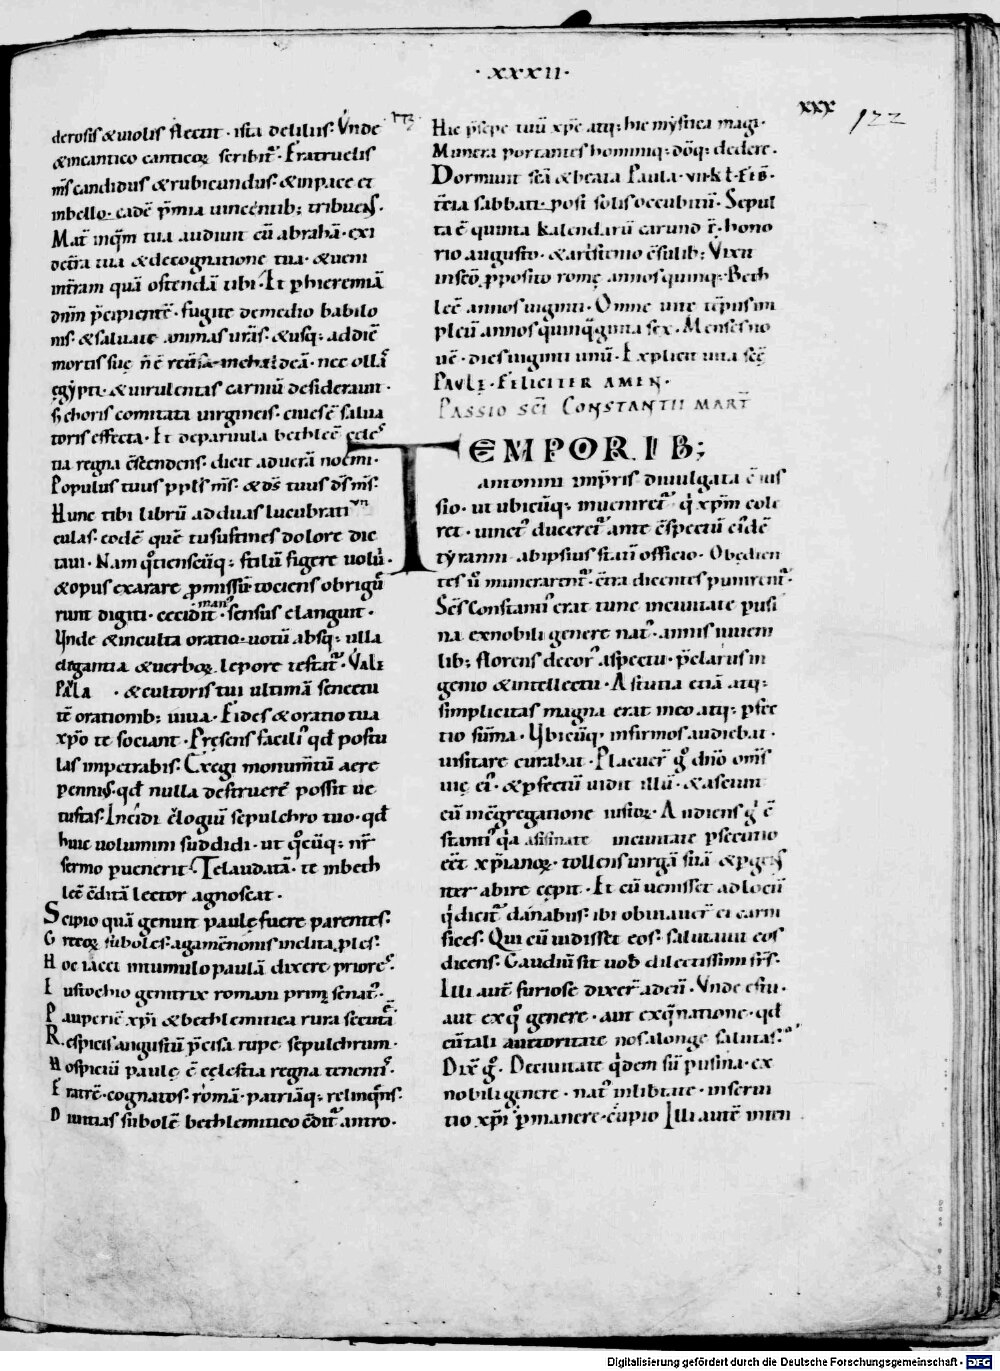 · xxxıı ·
xxx
122
derosis & uiolis flectit · ista de liliis: Vnde
& in cantico canticoꝝ scribit᷑ · Fratruelis
m̅s candidus & rubicundus: & in pace et
in bello · eadē p̄mia uincentib; tribuens.
Mat̅ inqͣm tua audiuit cū abrahā · exi
de tr̅a tua & de cognatione tua · & ueni
in t̅ram quā ostendā tibi · Et p hieremiā
dn̅m p̄cipientē · fugite de medio babilo
nis · & saluate animas ur̅as · & usq; ad diē
mortis suę n̄ ē reu͛sa in chaldeā · nec ollaͣ
ęgypti · & uirulentas carniū desiderauit ·
s; choris comitata uirgineis · ciues ē salua
toris effecta · Et de paruula bethleē cęles
tia regna c̄scendens: dicit ad uerā noemi ·
Populus tuus ppl's m̅s · & ds̅ tuus ds̅ m̅s:
Hunc tibi librū ad duas lucubrati
culas · eodē quē tu sustines dolore dic
taui · Nam qͦtienscūq; stilū figere uolui ·
& opus exarare p̱missū: tociens obrigue
runt digiti · cecidit man᷒ · sensus elanguit ·
Vnde & inculta oratio · uotū absq; ulla
elegantia & uerboꝝ lepore testat᷑ · VALE
PA̅LA · & cultoris tui ultimā senectu
tē orationib; iuua · Fides & oratio tua
xp̅o te sociant · Pręsens facili᷒ qd̵ postu
las impetrabis · Exegi monum̅tū aere
pennis · qd̵ nulla destruere possit ue
tustas · Incidi elogiū sepulchro tuo · qd̵
huic uolumini subdidi · ut qͦcūq; nr̅
sermo puenerit · Te laudatā · te in beth
leē c̄ditā lector agnoscat ·
Scipio quā genuit paulę fuere parentes:
Greeoꝝ suboles · agamēnonis inclita p̱les:
Hoc iacet in tumulo paulā dixere priores᷒ ·
Eustochio genitrix romani prim᷒ senat᷒ ·
Pauperiē xp̅i & bethlemitica rura secuta
Respicis angustū p̄cisa rupe sepulchrum ·
Hospiciū paulę ē cęlestia regna tenentis ·
Fratrē · cognatos · romā · patriāq; relinqͤns:
Diuitias subolē bethlemitico c̄dit᷑ antro ·
Hic p̄sepe tuū xp̅e atq; hic mystica magi ·
Munera portantes hominiq; dōq; dedere ·
Dormiuit sc̅a & beata Paula · vii · kl̅ · feb̅ ·
t̄cia sabbati · post solis occubitū · Sepul
ta ē quinta kalendarū earund r̄ · hono
rio augusto · & aristimo c̄sulib; Vixit
in sc̅o p̱posito romę annos quinq; · Beth
leē annos uiginti · Omne uite tēpus im
pleuī annos quinqͣginta sex · Menses no
uē · dies uiginti unū · Explicit uita sc̅ę
PAVLĘ · FELICITER AMEN ·
PASSIO SC̅I CONSTANTII MART̅
TEMPORIB;
antonini imp̱ris diuulgata ē ius
sio · ut ubicūq; inueniret᷑ qͥ xp̅m cole
ret · uinct᷒ duceret᷑ ante c̄spectū eidē
tyranni ab ipsius statī officio · Obedien
tes ū munerarent᷑ · c̄tra dicentes punirent᷑ ·
Sc̅s Constanti᷒ erat tunc in ciuitate pusi
na ex nobili genere nat᷒ · annis iuueni
lib; florens · decor᷒ aspectu · p̄clarus in
genio & intellectu · Astutia etiā atq;
simplicitas magna erat in eo atq; pfec
tio sūma · Vbicūq; infirmos audiebat ·
uisitare curabat · Placuer̅ gͦ dn̅o om̅s
uię ei᷒ · & pfectū uidit illū · & asciuit
cū in c̄gregatione iustoꝝ · Audiens gͥ c̄
stanti᷒ qͥa asisinate in ciuitate psecutio
eēt xp̅ianoꝝ · tollens uirgā suā & pgens
iter abire cępit · Et cū uenisset ad locū
qͥ dicit᷑ danabus: ibi obuiauer̅ ei carni
fices · Qui cū uidisset eos · salutauit eos
dicens: Gaudiū sit uob̅ dilectissimi fr̅s ·
Illi aut̅ furiose dixer̅ ad eū · Vnde es tu ·
aut ex qͦ genere · aut ex qͣ natione · qd̵
cū tali auctoritate nos a longe salutas:
Dix̅ gͦ · De ciuitate qͥdem sū pusina · ex
nobili genere · nat᷒ in libtate · in serui
tio xp̅i p̱manere cupio Illi autē inten
Digitalisierung gefördert durch die Deutsche Forschungsgemeinschaft · DFG